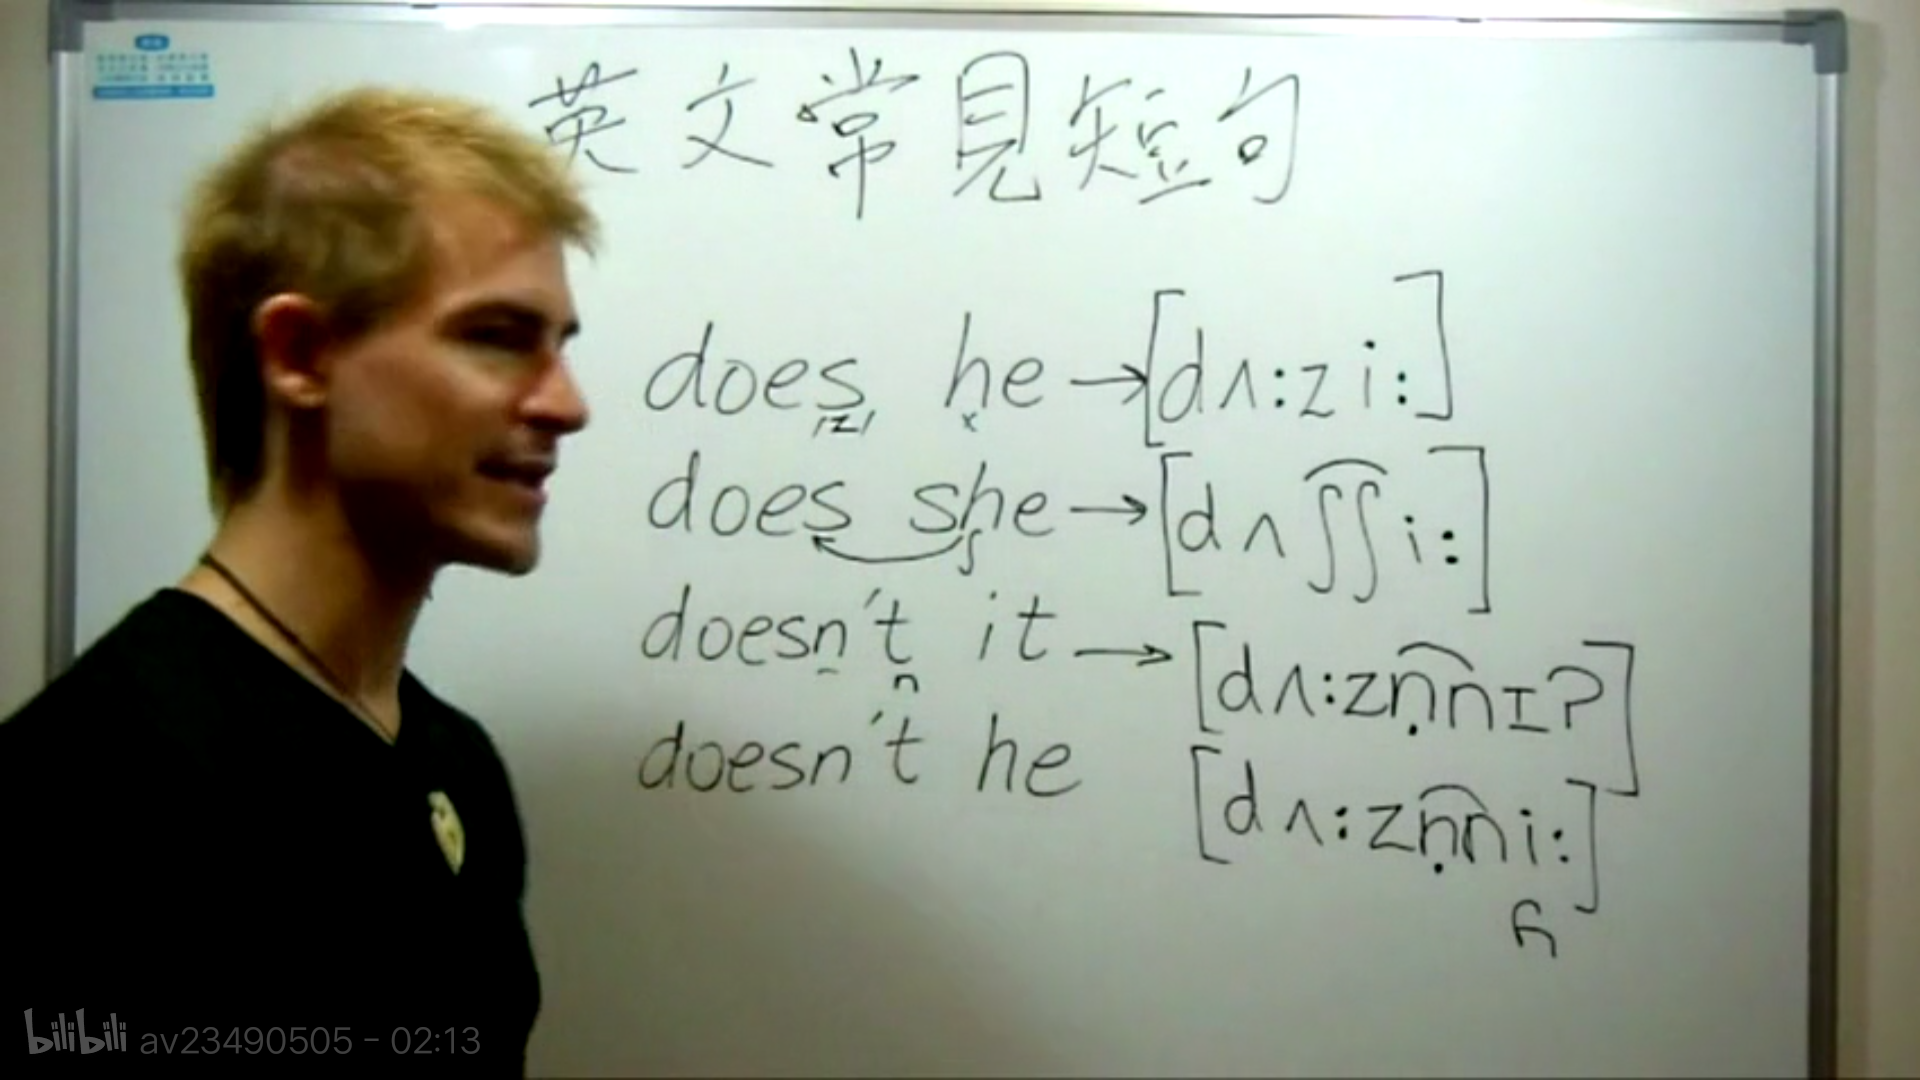 英文常見短句
does he → [dʌ:zi:]
/z/ x
does she → [dʌʃʃi:]
ʃ
doesn't it → [dʌ:zn̩nɪʔ]
n
doesn't he [dʌ:zn̩ni:]
ɦ
bilibili av23490505 - 02:13